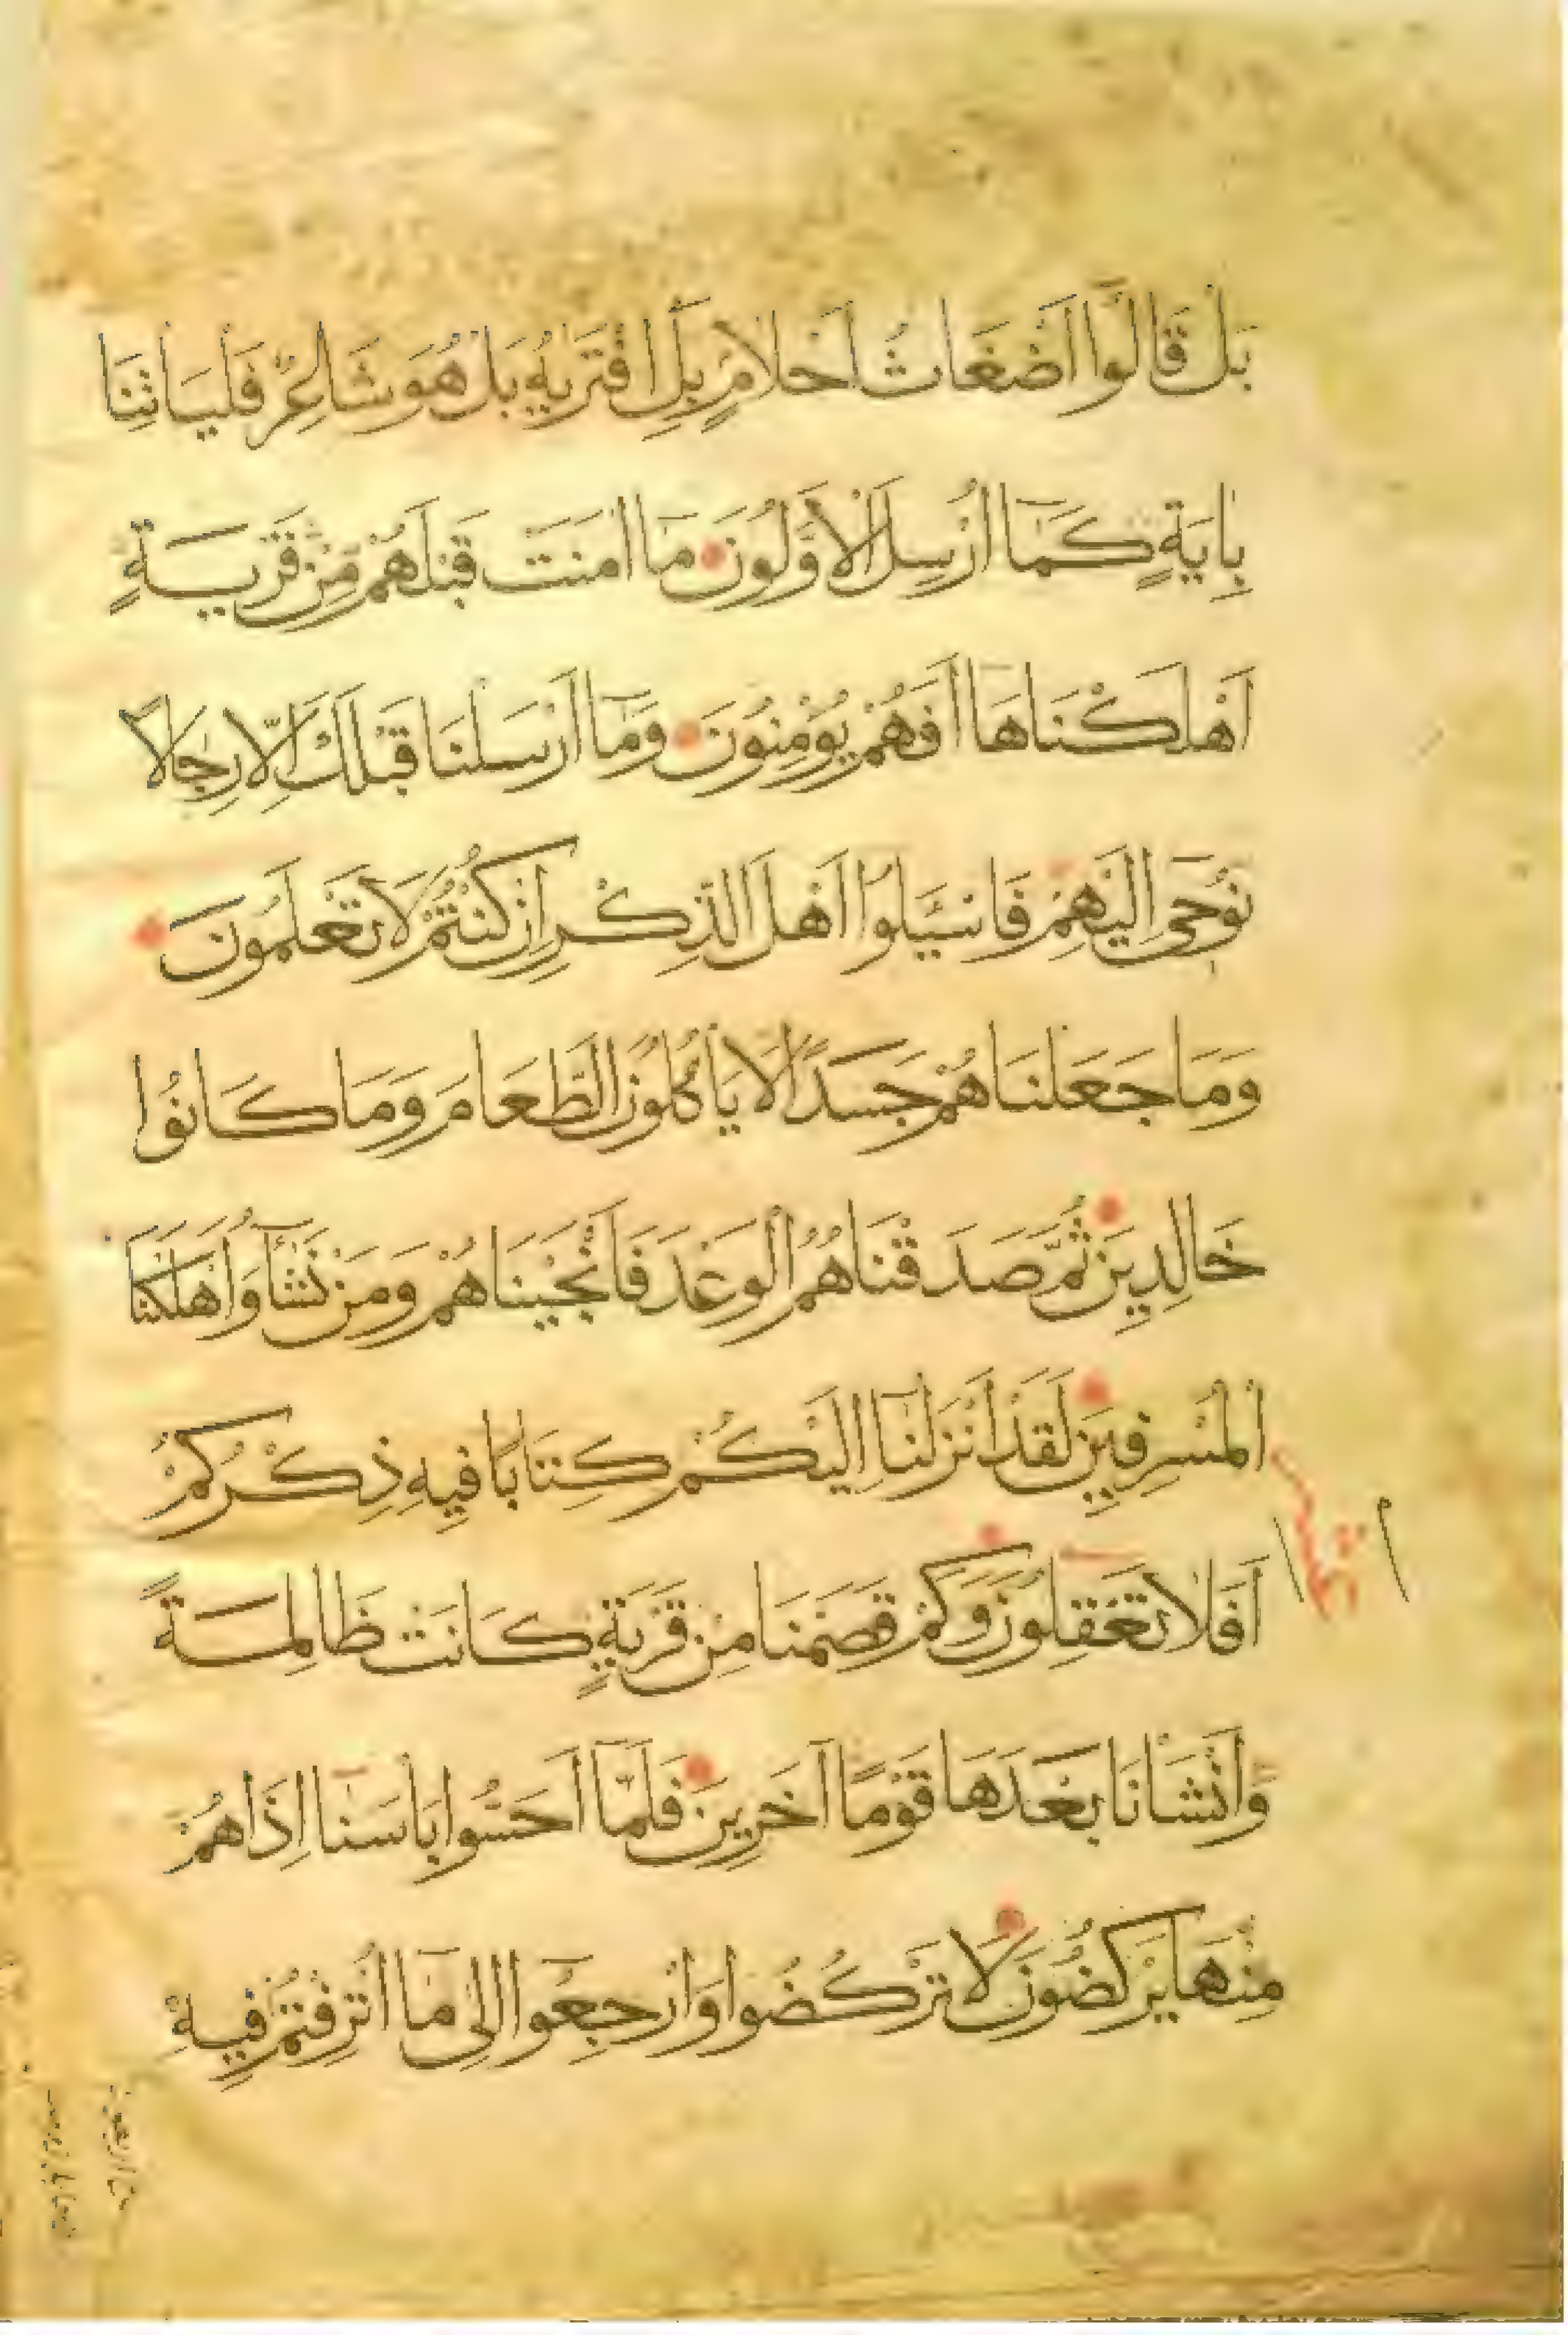 بَلْ قَالُوا اَضْغَاثُ اَحْلَامٍ بَلِ افْتَرٰيهُ بَلْ هُوَ شَاعِرٌ فَلْيَاْتِنَا
بِاٰيَةٍ كَمَٓا اُرْسِلَ الْاَوَّلُونَ مَٓا اٰمَنَتْ قَبْلَهُمْ مِنْ قَرْيَةٍ
اَهْلَكْنَاهَا اَفَهُمْ يُؤْمِنُونَ وَمَٓا اَرْسَلْنَا قَبْلَكَ اِلَّا رِجَالًا
نُوحٓى اِلَيْهِمْ فَاسْـَٔلُٓوا اَهْلَ الذِّكْرِ اِنْ كُنْتُمْ لَا تَعْلَمُونَ
وَمَا جَعَلْنَاهُمْ جَسَدًا لَا يَاْكُلُونَ الطَّعَامَ وَمَا كَانُوا
خَالِدِينَ ثُمَّ صَدَقْنَاهُمُ الْوَعْدَ فَاَنْجَيْنَاهُمْ وَمَنْ نَشَٓاءُ وَاَهْلَكْنَا
الْمُسْرِفِينَ لَقَدْ اَنْزَلْنَٓا اِلَيْكُمْ كِتَابًا فِيهِ ذِكْرُكُمْ
اَفَلَا تَعْقِلُونَ وَكَمْ قَصَمْنَا مِنْ قَرْيَةٍ كَانَتْ ظَالِمَةً
وَاَنْشَاْنَا بَعْدَهَا قَوْمًا اٰخَرِينَ فَلَمَّٓا اَحَسُّوا بَاْسَنَٓا اِذَا هُمْ
مِنْهَا يَرْكُضُونَ لَا تَرْكُضُوا وَارْجِعُٓوا اِلٰى مَٓا اُتْرِفْتُمْ فِيهِ